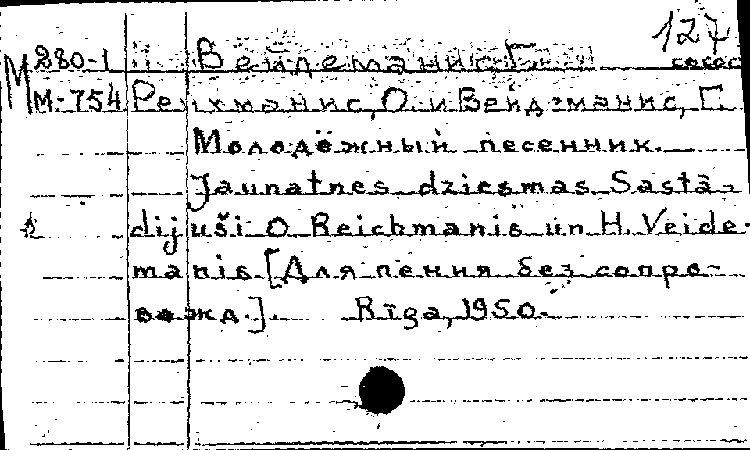 127
М 280-1 Вейдеманис, Г.
М-754 Рейхманис, О. и Вейдеманис, Г.
Молодёжный песенник.
Jaunatnes dziesmas Sastā-
dijuši O. Reichmanis un H. Veide-
manis. [Для пения без сопро-
вожд.]. Rīga, 1950.